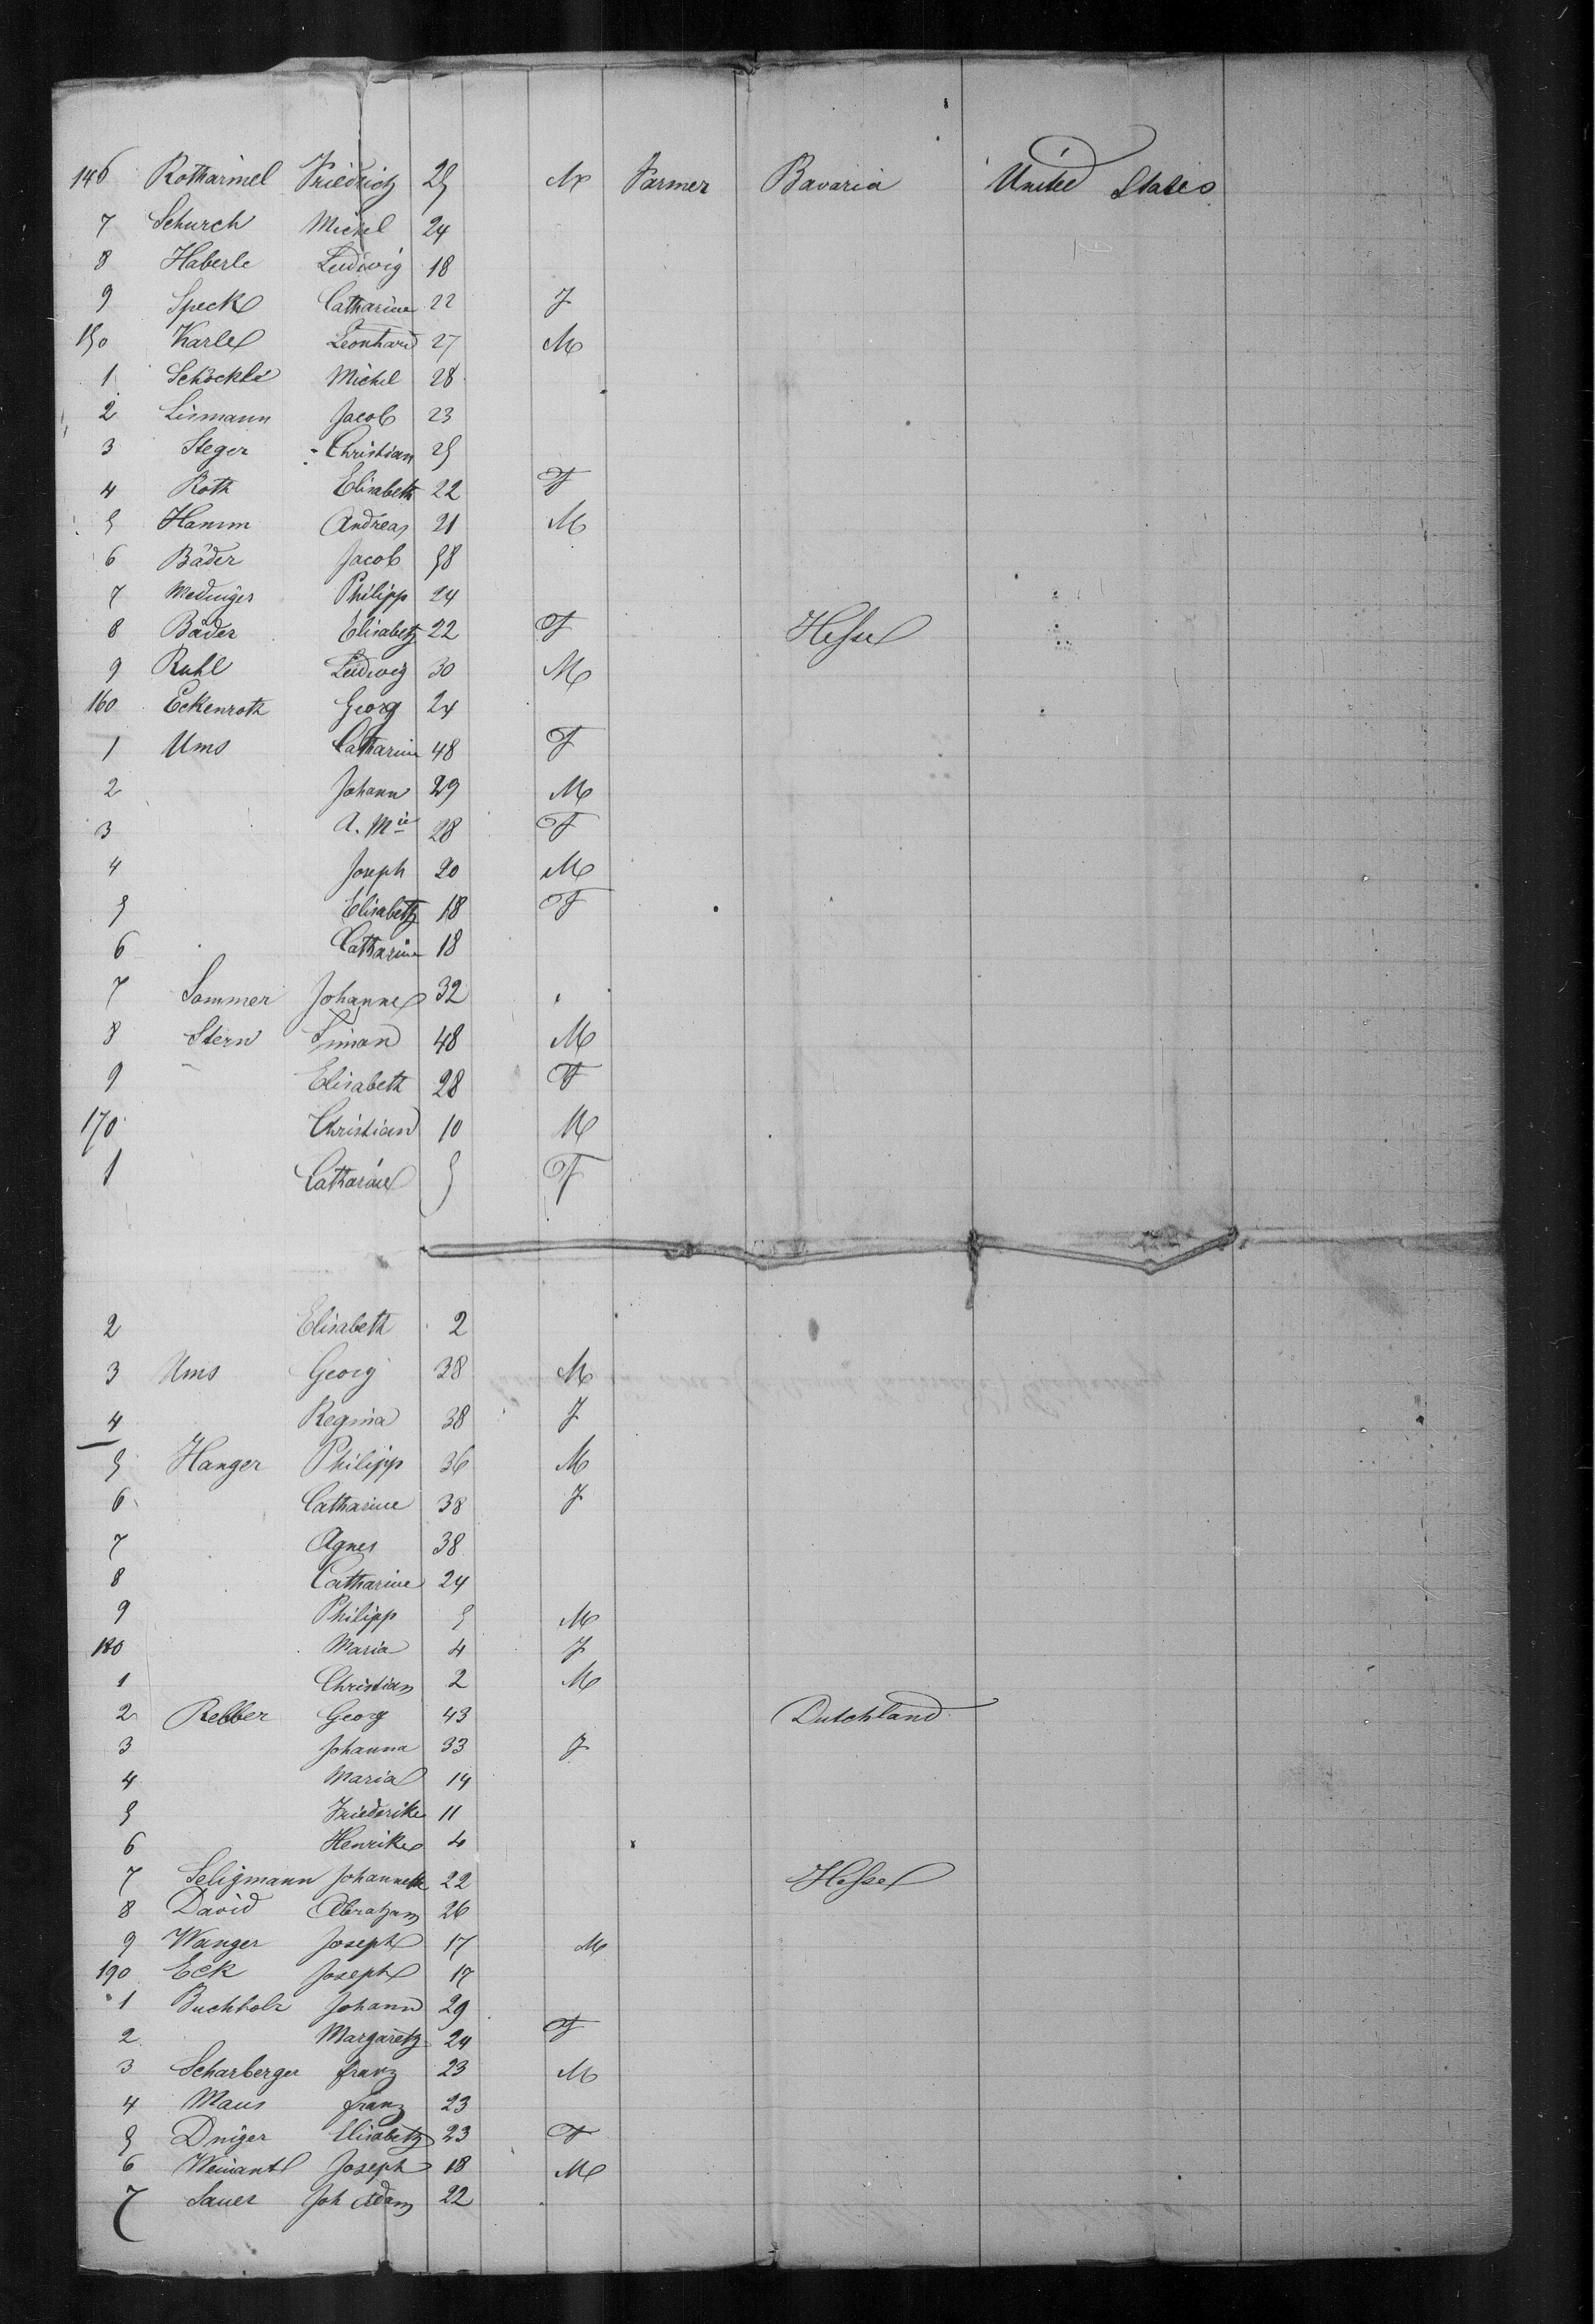 146 Rotharmel Friedrich 25 M Farmer Bavaria United States
7 Schurch Michel 24
8 Haberle Ludwig 18
9 Speck Catharine 22 F
150 Karle Leonhard 27 M
1 Schöckle Michel 28
2 Lismann Jacob 23
3 Steger Christian 25
4 Roth Elisabeth 22 F
5 Hamm Andreas 21 M
6 Bäder Jacob 58
7 Medinger Philipp 24
8 Bäder Elisabeth 22 F Hesse
9 Ruhl Ludwig 30 M
160 Eckenroth Georg 24
1 Ums Catharine 48 F
2 Johann 29 M
3 A. Mie 28 F
4 Joseph 20 M
5 Elisabeth 18 F
6 Catharine 18
7 Sommer Johanne 32
8 Stern Simon 48 M
9 Elisabeth 28 F
170 Christian 10 M
1 Catharine 5 F
2 Elisabeth 2
3 Ums Georg 38 M
4 Regina 38 F
5 Hanger Philipp 36 M
6 Catharine 38 F
7 Agnes 38
8 Catharine 24
9 Philipp 5 M
180 Maria 4 F
1 Christian 2 M
2 Rebber Georg 43 Dutchland
3 Johanna 33 F
4 Maria 14
5 Friederike 11
6 Henrike 4
7 Seligmann Johannette 22 Hesse
8 David Abraham 26
9 Wanger Joseph 17 M
190 Eck Joseph 17
1 Buchholz Johann 29
2 Margareth 24 F
3 Scharberger franz 23 M
4 Maus franz 23
5 Dniger Elisabeth 23 F
6 Weinantl Joseph 18 M
7 Sauer Joh Adam 22